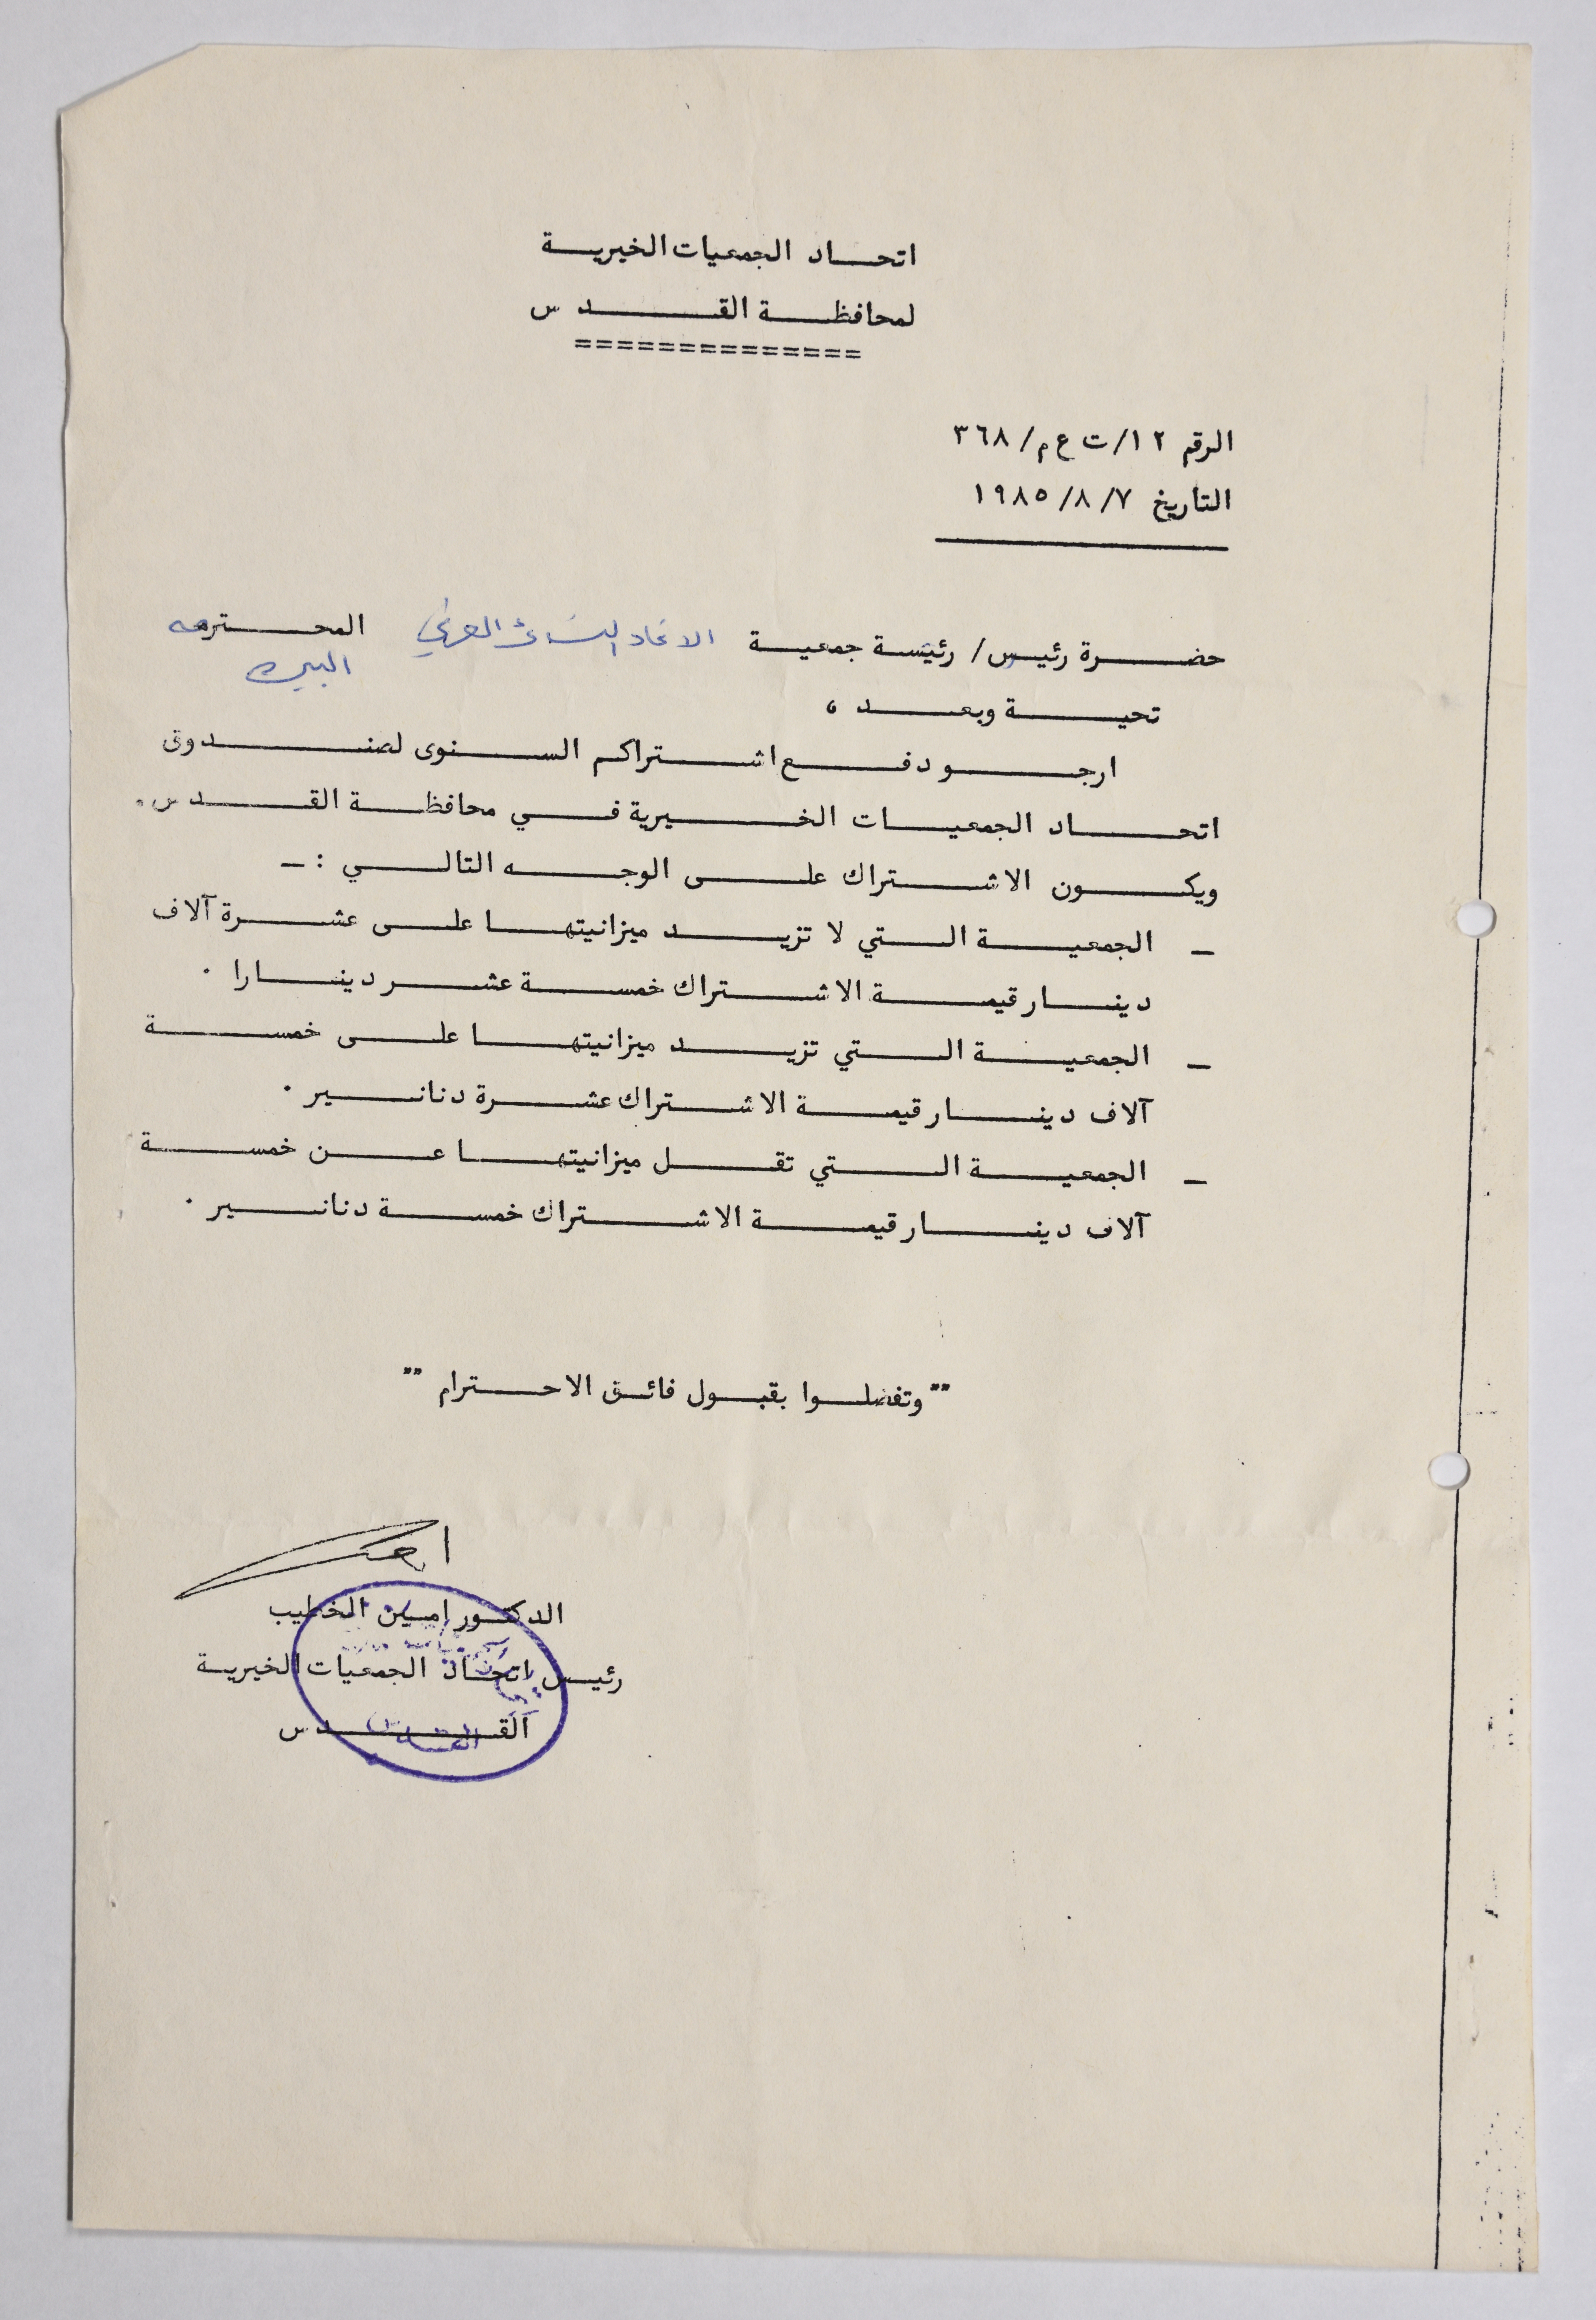 اتحاد الجمعيات الخيرية
لمحافظة القدس
==============
الرقم ١٢/ت ع م/٣٦٨
التاريخ ١٩٨٥/٨/٧
حضرة رئيس/ رئيسة جمعية الاتحاد النسائي العربي المحترمه
البيره
تحية وبعد ،
ارجو دفع اشتراكم السنوى لصندوق
اتحاد الجمعيات الخيرية في محافظة القدس.
ويكون الاشتراك على الوجه التالي :ـ
ـ الجمعية التي لا تزيد ميزانيتها على عشرة آلاف
دينار قيمة الاشتراك خمسة عشر دينارا .
ـ الجمعية التي تزيد ميزانيتها على خمسة
آلاف دينار قيمة الاشتراك عشرة دنانير .
ـ الجمعية التي تقل ميزانيتها عن خمسة
آلاف دينار قيمة الاشتراك خمسة دنانير .
"" وتفضلوا بقبول فائق الاحترام ""
الدكتور امين الخطيب
رئيس اتحاد الجمعيات الخيرية
القدس
القدس